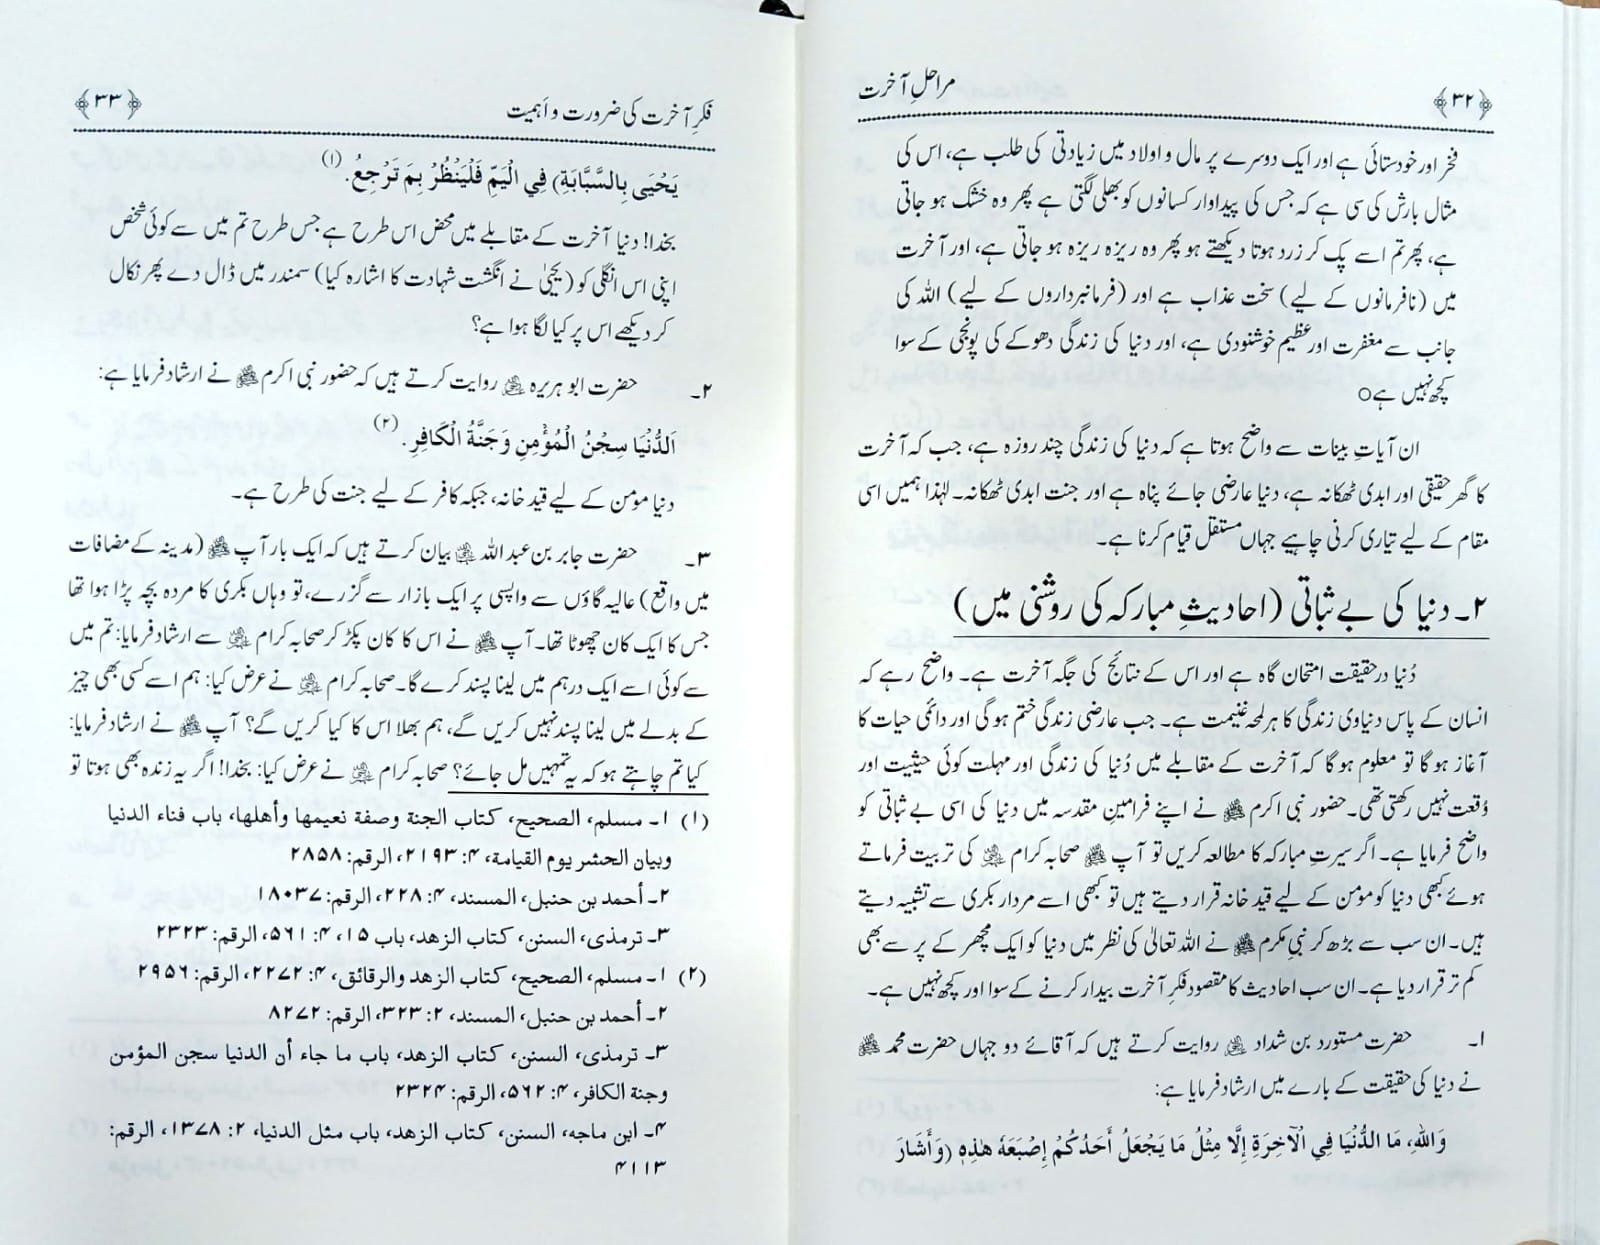 ﴿۳۲﴾ مراحلِ آخرت
فخر اور خودستائی ہے اور ایک دوسرے پر مال و اولاد میں زیادتی کی طلب ہے، اس کی
مثال بارش کی سی ہے کہ جس کی پیداوار کسانوں کو بھلی لگتی ہے پھر وہ خشک ہو جاتی
ہے، پھر تم اسے پک کر زرد ہوتا دیکھتے ہو پھر وہ ریزہ ریزہ ہو جاتی ہے، اور آخرت
میں (نافرمانوں کے لیے) سخت عذاب ہے اور (فرمانبرداروں کے لیے) اللہ کی
جانب سے مغفرت اور عظیم خوشنودی ہے، اور دنیا کی زندگی دھوکے کی پونجی کے سوا
کچھ نہیں ہے○
ان آیاتِ بینات سے واضح ہوتا ہے کہ دنیا کی زندگی چند روزہ ہے، جب کہ آخرت
کا گھر حقیقی اور ابدی ٹھکانہ ہے، دنیا عارضی جائے پناہ ہے اور جنت ابدی ٹھکانہ۔ لہٰذا ہمیں اسی
مقام کے لیے تیاری کرنی چاہیے جہاں مستقل قیام کرنا ہے۔
۲۔ دنیا کی بے ثباتی (احادیثِ مبارکہ کی روشنی میں)
دُنیا درحقیقت امتحان گاہ ہے اور اس کے نتائج کی جگہ آخرت ہے۔ واضح رہے کہ
انسان کے پاس دنیاوی زندگی کا ہر لمحہ غنیمت ہے۔ جب عارضی زندگی ختم ہوگی اور دائمی حیات کا
آغاز ہوگا تو معلوم ہوگا کہ آخرت کے مقابلے میں دُنیا کی زندگی اور مہلت کوئی حیثیت اور
وُقعت نہیں رکھتی تھی۔ حضور نبی اکرم ﷺ نے اپنے فرامینِ مقدسہ میں دنیا کی اسی بے ثباتی کو
واضح فرمایا ہے۔ اگر سیرتِ مبارکہ کا مطالعہ کریں تو آپ ﷺ صحابہ کرام کی تربیت فرماتے
ہوئے کبھی دنیا کو مؤمن کے لیے قید خانہ قرار دیتے ہیں تو کبھی اسے مردار بکری سے تشبیہ دیتے
ہیں۔ ان سب سے بڑھ کر نبی مکرم ﷺ نے اللہ تعالیٰ کی نظر میں دنیا کو ایک مچھر کے پر سے بھی
کم تر قرار دیا ہے۔ ان سب احادیث کا مقصود فکرِ آخرت بیدار کرنے کے سوا اور کچھ نہیں ہے۔
۱۔ حضرت مستورد بن شداد روایت کرتے ہیں کہ آقائے دو جہاں حضرت محمد ﷺ
نے دنیا کی حقیقت کے بارے میں ارشاد فرمایا ہے:
وَاللهِ، مَا الدُّنْيَا فِي الْآخِرَةِ إِلَّا مِثْلُ مَا يَجْعَلُ أَحَدُكُمْ إِصْبَعَهُ هٰذِهٖ (وَأَشَارَ
فکرِ آخرت کی ضرورت و اَہمیت ﴿۳۳﴾
يَحْيَى بِالسَّبَّابَةِ) فِي الْيَمِّ فَلْيَنْظُرْ بِمَ تَرْجِعُ.(۱)
بخدا! دنیا آخرت کے مقابلے میں محض اس طرح ہے جس طرح تم میں سے کوئی شخص
اپنی اس انگلی کو (یحییٰ نے انگشت شہادت کا اشارہ کیا) سمندر میں ڈال دے پھر نکال
کر دیکھے اس پر کیا لگا ہوا ہے؟
۲۔ حضرت ابو ہریرہ روایت کرتے ہیں کہ حضور نبی اکرم ﷺ نے ارشاد فرمایا ہے:
اَلدُّنْيَا سِجْنُ الْمُؤْمِنِ وَجَنَّةُ الْكَافِرِ.(۲)
دنیا مؤمن کے لیے قید خانہ، جبکہ کافر کے لیے جنت کی طرح ہے۔
۳۔ حضرت جابر بن عبد اللہ بیان کرتے ہیں کہ ایک بار آپ ﷺ (مدینہ کے مضافات
میں واقع) عالیہ گاؤں سے واپسی پر ایک بازار سے گزرے، تو وہاں بکری کا مردہ بچہ پڑا ہوا تھا
جس کا ایک کان چھوٹا تھا۔ آپ ﷺ نے اس کا کان پکڑ کر صحابہ کرام سے ارشاد فرمایا: تم میں
سے کوئی اسے ایک درہم میں لینا پسند کرے گا۔ صحابہ کرام نے عرض کیا: ہم اسے کسی بھی چیز
کے بدلے میں لینا پسند نہیں کریں گے، ہم بھلا اس کا کیا کریں گے؟ آپ ﷺ نے ارشاد فرمایا:
کیا تم چاہتے ہو کہ یہ تمہیں مل جائے؟ صحابہ کرام نے عرض کیا: بخدا! اگر یہ زندہ بھی ہوتا تو
(۱) ۱۔ مسلم، الصحيح، كتاب الجنة وصفة نعيمها وأهلها، باب فناء الدنيا
وبيان الحشر يوم القيامة، ۴: ۲۱۹۳، الرقم: ۲۸۵۸
۲۔ أحمد بن حنبل، المسند، ۴: ۲۲۸، الرقم: ۱۸۰۳۷
۳۔ ترمذی، السنن، كتاب الزهد، باب ۱۵، ۴: ۵۶۱، الرقم: ۲۳۲۳
(۲) ۱۔ مسلم، الصحيح، كتاب الزهد والرقائق، ۴: ۲۲۷۲، الرقم: ۲۹۵۶
۲۔ أحمد بن حنبل، المسند، ۲: ۳۲۳، الرقم: ۸۲۷۲
۳۔ ترمذی، السنن، كتاب الزهد، باب ما جاء أن الدنيا سجن المؤمن
وجنة الكافر، ۴: ۵۶۲، الرقم: ۲۳۲۴
۴۔ ابن ماجه، السنن، كتاب الزهد، باب مثل الدنيا، ۲: ۱۳۷۸، الرقم:
۴۱۱۳